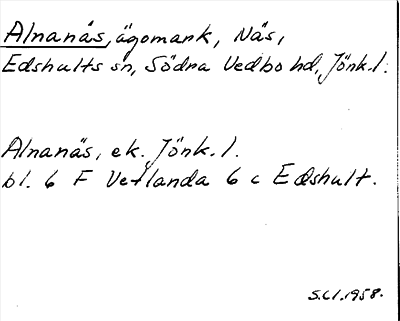 Alnanäs, ägomark, Näs,
Edshults sn, Södra Vedbo hd, Jönk.l.
Alnanäs, ek. Jönk.l.
bl. 6 F Vetlanda 6 c Edshult.
S.Cl.1958.